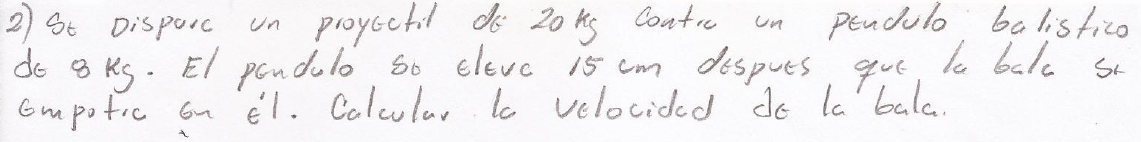 2) Se Dispara un proyectil de 20 Kg contra un pendulo balistico
de 8 Kg. El pendulo se eleva 15 cm despues que la bala se
empotra en él. Calcular la velocidad de la bala.